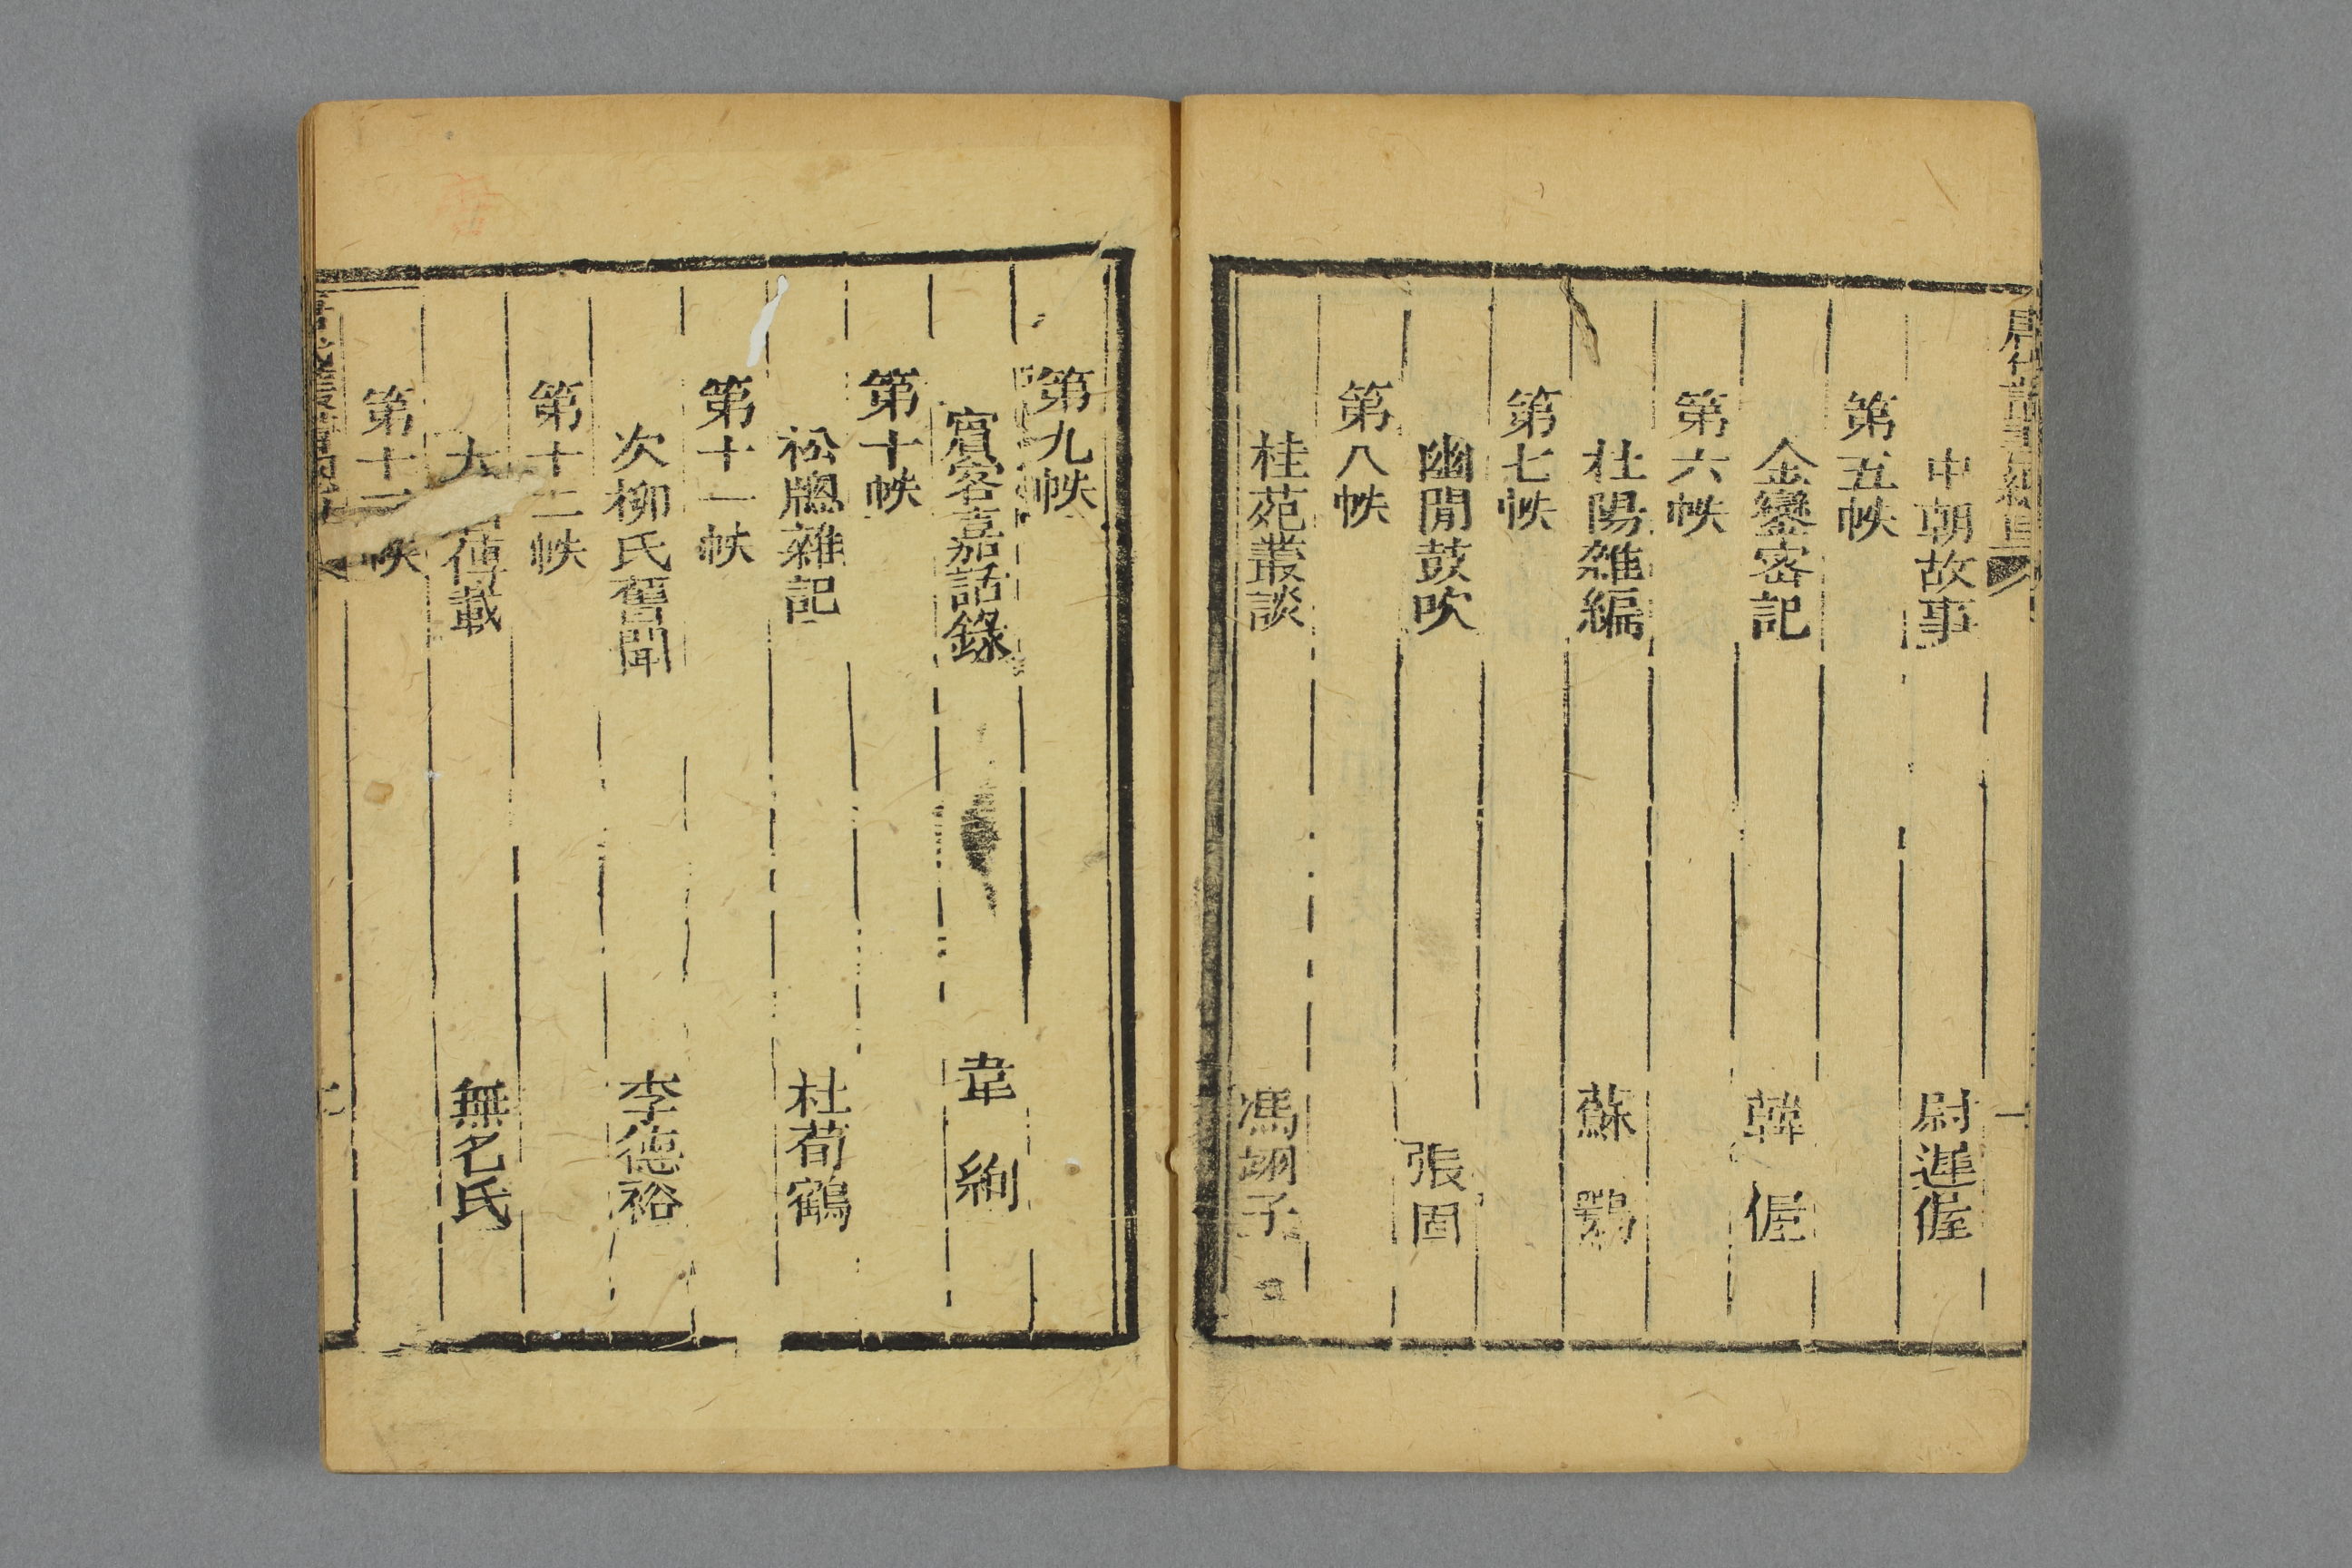 中朝故事 尉遲偓
第五帙
金鑾密記 韓偓
第六帙
杜陽雜編 蘇鶚
第七帙
幽閒鼓吹 張固
第八帙
桂苑叢談 馮翊子
第九帙
賓客嘉話錄 韋絢
第十帙
松牕雜記 杜荀鶴
第十一帙
次柳氏舊聞 李德裕
第十二帙
大 傳載 無名氏
第十三帙